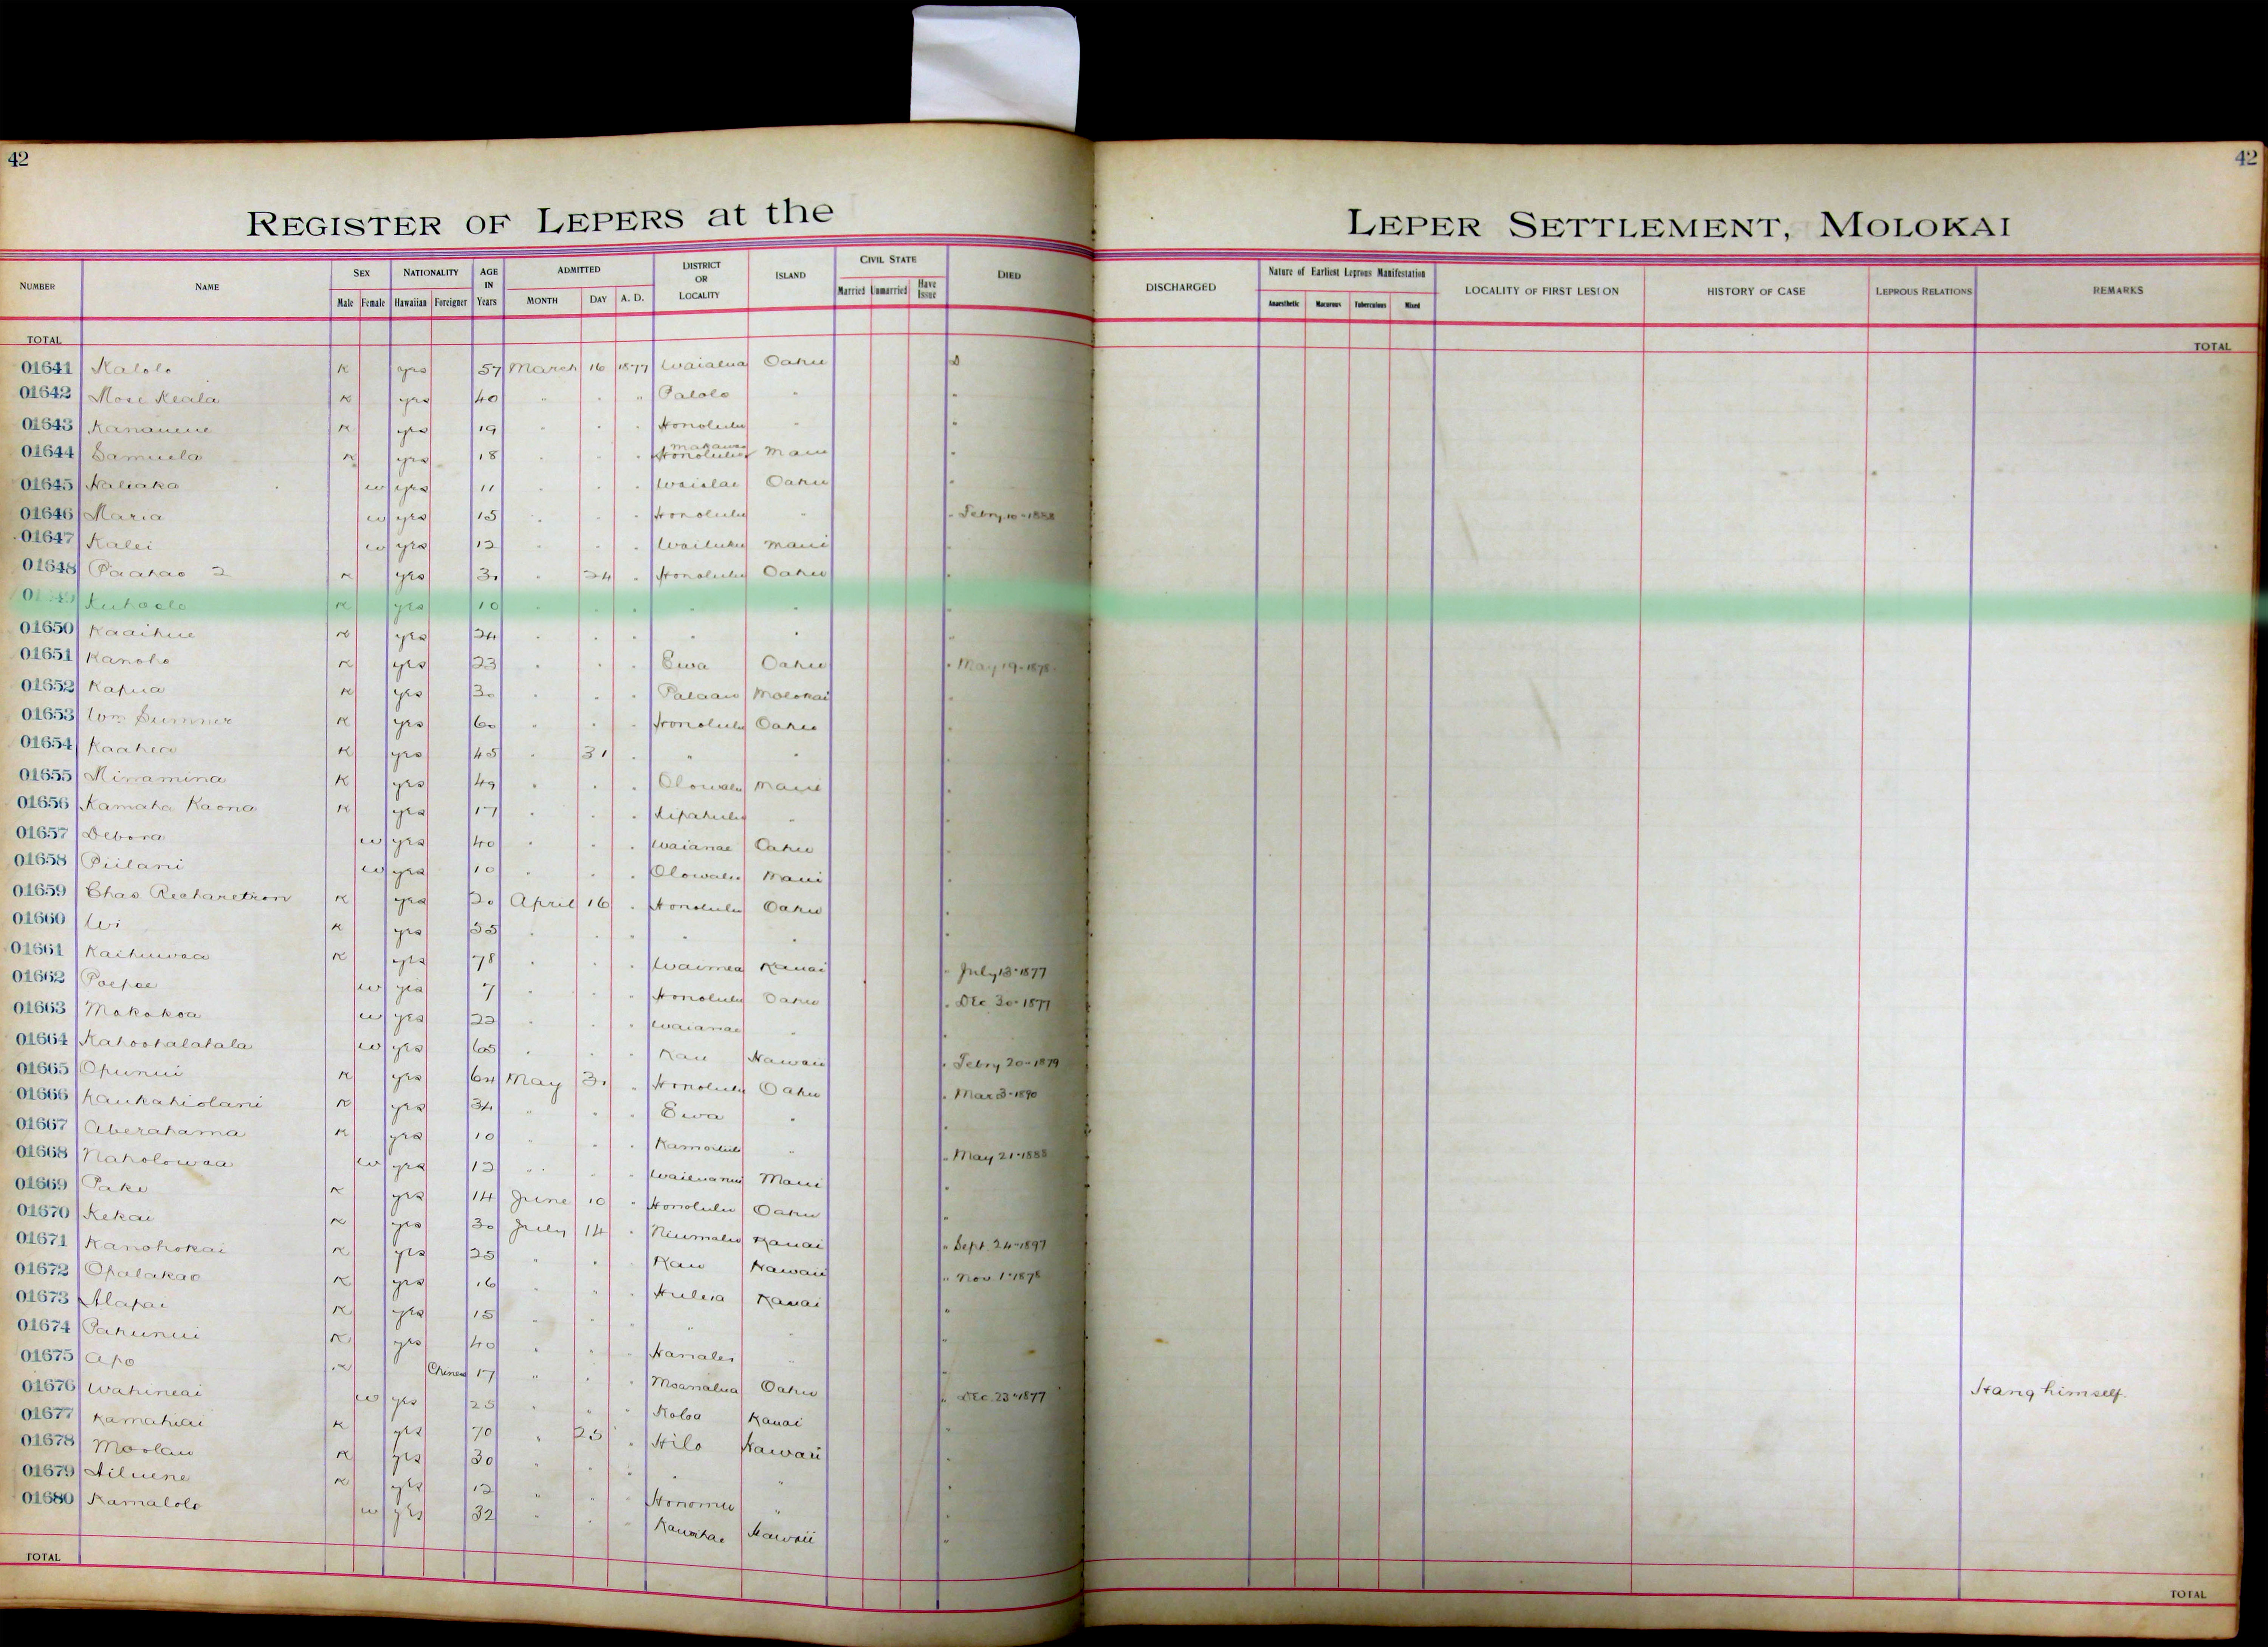 42
42
REGISTER OF LEPERS at the LEPER SETTLEMENT, MOLOKAI
NUMBER NAME SEX NATIONALITY AGE IN Years ADMITTED DISTRICT OR LOCALITY ISLAND CIVIL STATE DIED DISCHARGED Nature of Earliest Leprous Manifestation LOCALITY OF FIRST LESION HISTORY OF CASE LEPROUS RELATIONS REMARKS
Male Female Hawaiian Foreigner MONTH DAY A. D. Married Unmarried Have Issue Anaesthetic Macurous Tuberculous Mixed
TOTAL TOTAL
01641 Kalolo K yes 57 March 16 1877 Waialua Oahu D
01642 Mose Keala K yes 40 " " " Palolo " "
01643 Kananene K yes 19 " " " Honolulu " "
01644 Samuela K yes 18 " " " Makawao Honolulu Maui "
01645 Naliaka w yes 11 " " " Waialae Oahu "
01646 Maria w yes 15 " " " Honolulu " " Febry 10-1888
01647 Kalei w yes 12 " " " Wailuku Maui "
01648 Paahao 2 K yes 30 " 24 " Honolulu Oahu "
K yes 10 " " " " " "
01650 Kaaihue K yes 24 " " " " " "
01651 Kanoho K yes 23 " " " Ewa Oahu " May 19-1878
01652 Kapua K yes 30 " " " Palaau Molokai "
01653 Wm Sumner K yes 60 " " " Honolulu Oahu "
01654 Kaahea K yes 45 " 31 " " " "
01655 Minamina K yes 49 " " " Olowalu Maui "
01656 Kamaha Kaona K yes 17 " " " Kipahulu " "
01657 Debora w yes 40 " " " Waianae Oahu "
01658 Piilani w yes 10 " " " Olowalu Maui "
01659 Chas Richardson K yes 20 April 16 " Honolulu Oahu "
01660 Wi K yes 35 " " " " " "
01661 Kaihuwaa K yes 78 " " " Waimea Kauai " July 13-1877
01662 Poepoe w yes 7 " " " Honolulu Oahu " Dec 30-1877
01663 Makakoa w yes 22 " " " Waianae " "
01664 Kahoohalahala w yes 65 " " " Kau Hawaii " Febry 20-1879
01665 Opunui K yes 64 May 31 " Honolulu Oahu " Mar 3-1890
01666 Kaukahiolani K yes 34 " " " Ewa " "
01667 Aberahama K yes 10 " " " Kamoiliili " " May 21-1888
01668 Naholowaa w yes 12 " " " Wailuanui Maui "
01669 Pake K yes 14 June 10 " Honolulu Oahu "
01670 Kekai K yes 30 July 14 " Niumalu Kauai " Sept. 24-1897
01671 Kanohokai K yes 25 " " " Kau Hawaii " Nov. 1-1878
01672 Opalakao K yes 16 " " " Huleia Kauai "
01673 Alapai K yes 15 " " " " " "
01674 Pahunui K yes 40 " " " Hanalei " "
01675 Apo K Chinese 17 " " " Moanalua Oahu " Dec. 23-1877 Hang himself.
01676 Wahineai w yes 25 " " " Koloa Kauai "
01677 Kamahiai K yes 70 " 25 " Hilo Hawaii "
01678 Moolau K yes 30 " " " " " "
01679 K yes 12 " " " Honomu " "
01680 Kamalolo w yes 32 " " " Kawaihae Hawaii "
TOTAL TOTAL